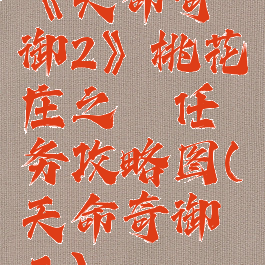 《天命奇
御2》桃花
庄之 任
务攻略图(
天命奇御
2)